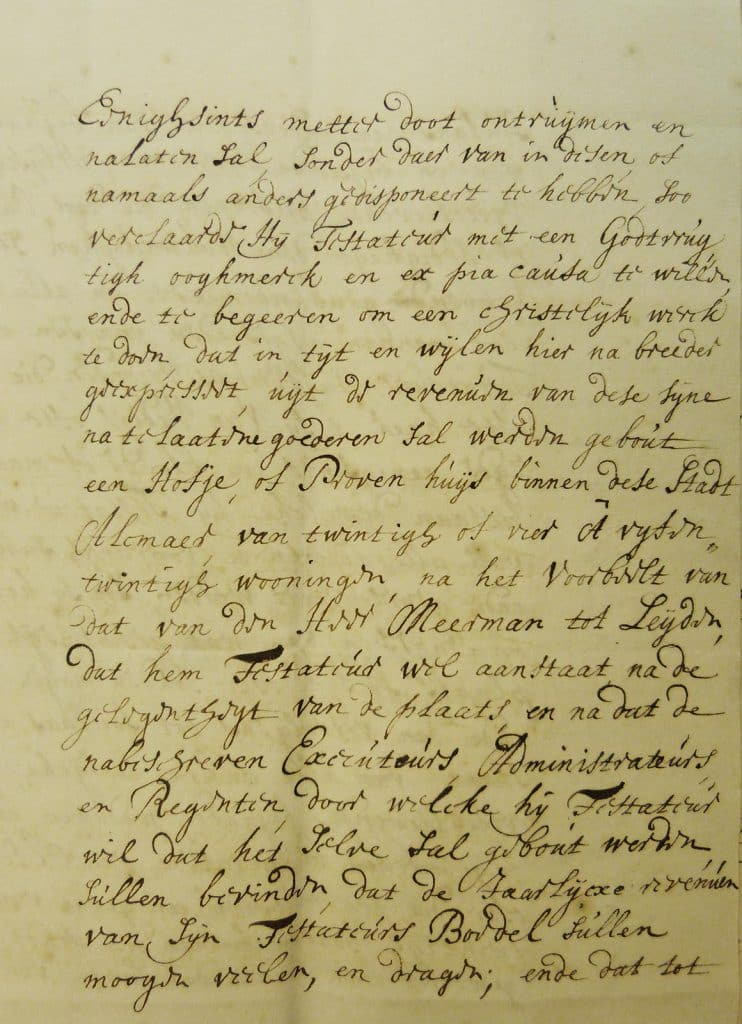 Eenighsints metter doot ontruijmen en
nalaten sal, sonder daer van in desen, of
namaals anders gedisponeert te hebben, soo
verclaarde Hij Testateur met een Godtvrug
tigh ooghmerck en ex pia causa te willen,
ende te begeeren om een christelijk werck
te doen, dat in tijt en wijlen hier na breeder
geexpresseert, uijt de revenuen van dese sijne
natelaatene goederen sal werden gebout
een Hofje, of Proven huijs binnen dese Stadt
Alcmaer, van twintigh of vier à vyfen„
twintigh wooningen, na het Voorbeelt van
dat van den Heer Meerman tot Leyden,
dat hem Testateur wel aanstaat na de
gelegentheyt van de plaats, en na dat de
nabeschreven Executeurs, Administrateurs,
en Regenten, door welcke hij Testateur
wil dat het selve sal gebout werden
sullen bevinden, dat de Jaarlijcxe revenuen
van, sijn Testateurs Boedel sullen
moogen veelen, en dragen; ende dat tot